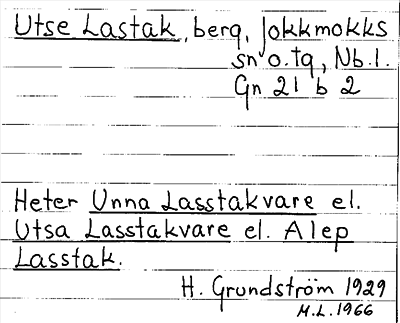 Utse Lastak, berg, Jokkmokks
sn o. tg, Nb. l.
Gn 21 b 2
Heter Unna Lasstakvare el.
Utsa Lasstakvare el. Alep
Lasstak.
H. Grundström 1929
M.L. 1966